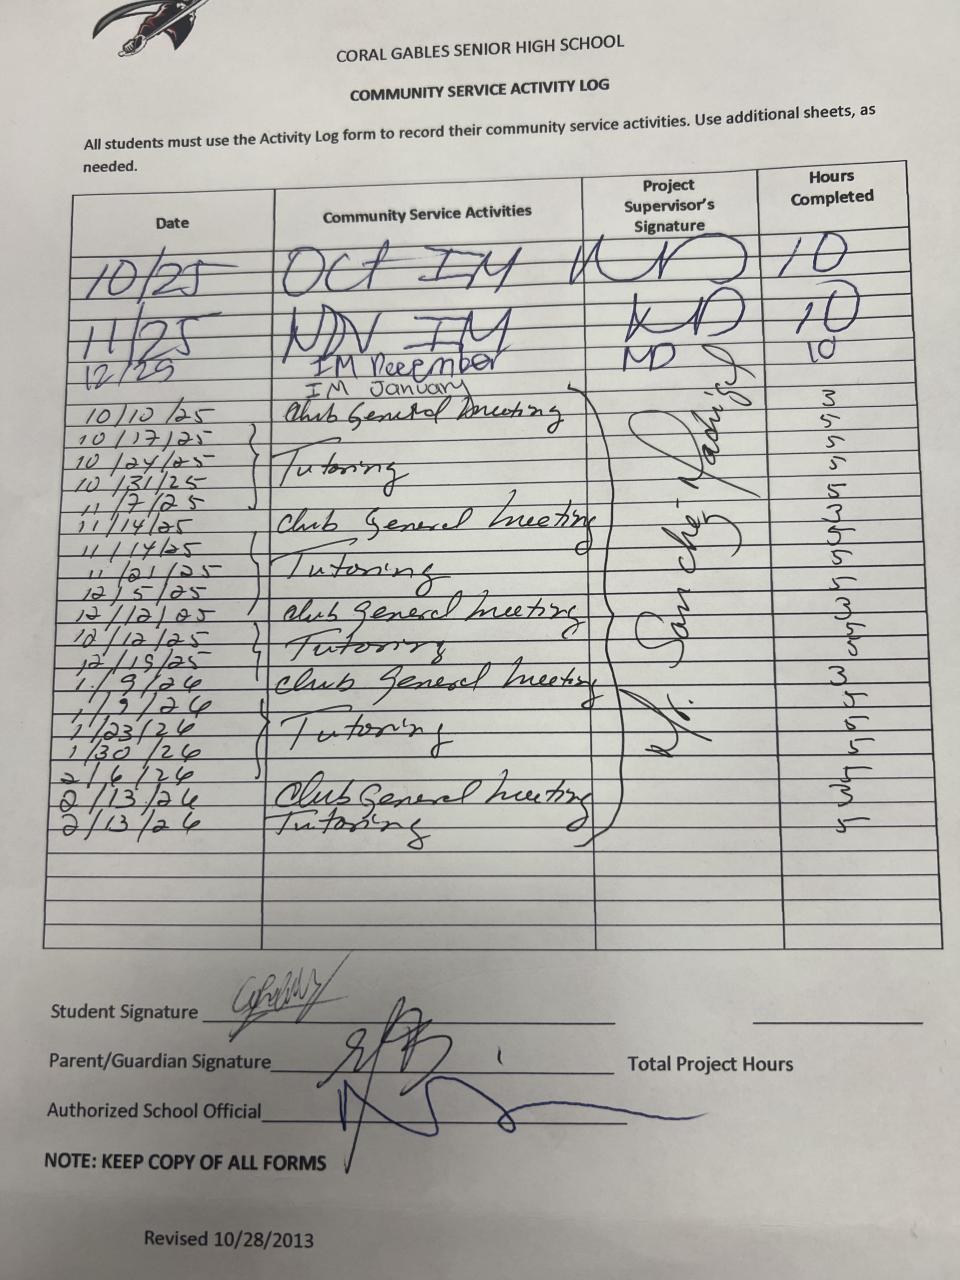 CORAL GABLES SENIOR HIGH SCHOOL
COMMUNITY SERVICE ACTIVITY LOG
All students must use the Activity Log form to record their community service activities. Use additional sheets, as
needed.
Date Community Service Activities Project Supervisor's Signature Hours Completed
10/25 Oct IM 10
11/25 NOV IM ND 10
12/25 IM December ND 10
IM January
10/10/25 Club General Meeting 3
10/17/25 5
10/24/25 Tutoring 5
10/31/25 5
11/7/25 5
11/14/25 Club General Meeting 3
11/14/25 5
11/21/25 Tutoring 5
12/5/25 5
12/12/25 Club General Meeting 3
12/12/25 Tutoring 5
12/19/25
1/9/26 Club General Meeting 3
1/9/26 5
1/23/26 Tutoring 5
1/30/26 5
2/6/26 5
2/13/26 Club General Meeting 3
2/13/26 Tutoring 5
Mr. Sanchez
Student Signature
Parent/Guardian Signature Total Project Hours
Authorized School Official
NOTE: KEEP COPY OF ALL FORMS
Revised 10/28/2013